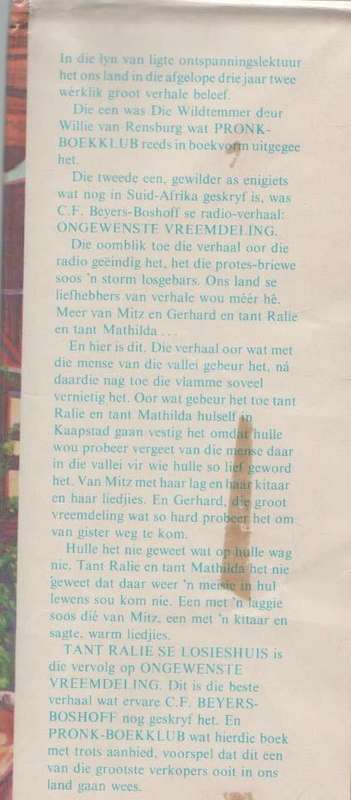 In die lyn van ligte ontspanningslektuur
het ons land in die afgelope drie jaar twee
wérklik groot verhale beleef.
Die een was Die Wildtemmer deur
Willie van Rensburg wat PRONK-
BOEKKLUB reeds in boekvorm uitgegee
het.
Die tweede een, gewilder as enigiets
wat nog in Suid-Afrika geskryf is, was
C.F. Beyers-Boshoff se radio-verhaal:
ONGEWENSTE VREEMDELING.
Die oomblik toe die verhaal oor die
radio geëindig het, het die protes-briewe
soos 'n storm losgebars. Ons land se
liefhebbers van verhale wou méér hê.
Meer van Mitz en Gerhard en tant Ralie
en tant Mathilda . . .
En hier is dit. Die verhaal oor wat met
die mense van die vallei gebeur het, ná
daardie nag toe die vlamme soveel
vernietig het. Oor wat gebeur het toe tant
Ralie en tant Mathilda hulself in
Kaapstad gaan vestig het omdat hulle
wou probeer vergeet van die mense daar
in die vallei vir wie hulle so lief geword
het. Van Mitz met haar lag en haar kitaar
en haar liedjies. En Gerhard, die groot
vreemdeling wat so hard probeer het om
van gister weg te kom.
Hulle het nie geweet wat op hulle wag
nie. Tant Ralie en tant Mathilda het nie
geweet dat daar weer 'n meisie in hul
lewens sou kom nie. Een met 'n laggie
soos dié van Mitz, een met 'n kitaar en
sagte, warm liedjies.
TANT RALIE SE LOSIESHUIS is
die vervolg op ONGEWENSTE
VREEMDELING. Dit is die beste
verhaal wat ervare C.F. BEYERS-
BOSHOFF nog geskryf het. En
PRONK-BOEKKLUB wat hierdie boek
met trots aanbied, voorspel dat dit een
van die grootste verkopers ooit in ons
land gaan wees.